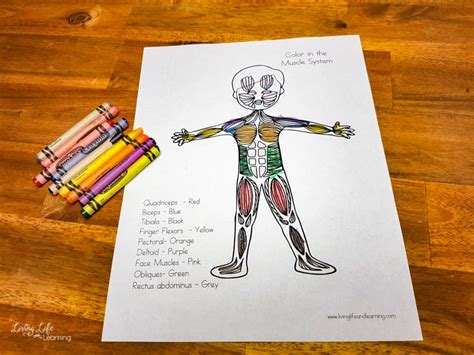 Color in the
Muscle System
Quadriceps - Red
Biceps - Blue
Tibialis - Black
Finger Flexors - Yellow
Pectoral- Orange
Deltoid - Purple
Face Muscles - Pink
Obliques- Green
Rectus abdominus - Grey
www.livinglifeandlearning.com
Living Life
and Learning